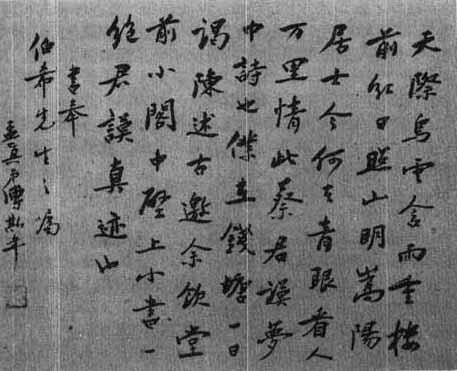 天際烏雲含雨重樓
前紅日照山明嵩陽
居士今何在青眼看人
万里情此蔡君謨夢
中詩也僕在錢塘一日
謁陳述古邀余飲堂
前小閣中壁上小書一
絕君謨真迹也
書奉
伯希先生之屬
孟真弟傅斯年